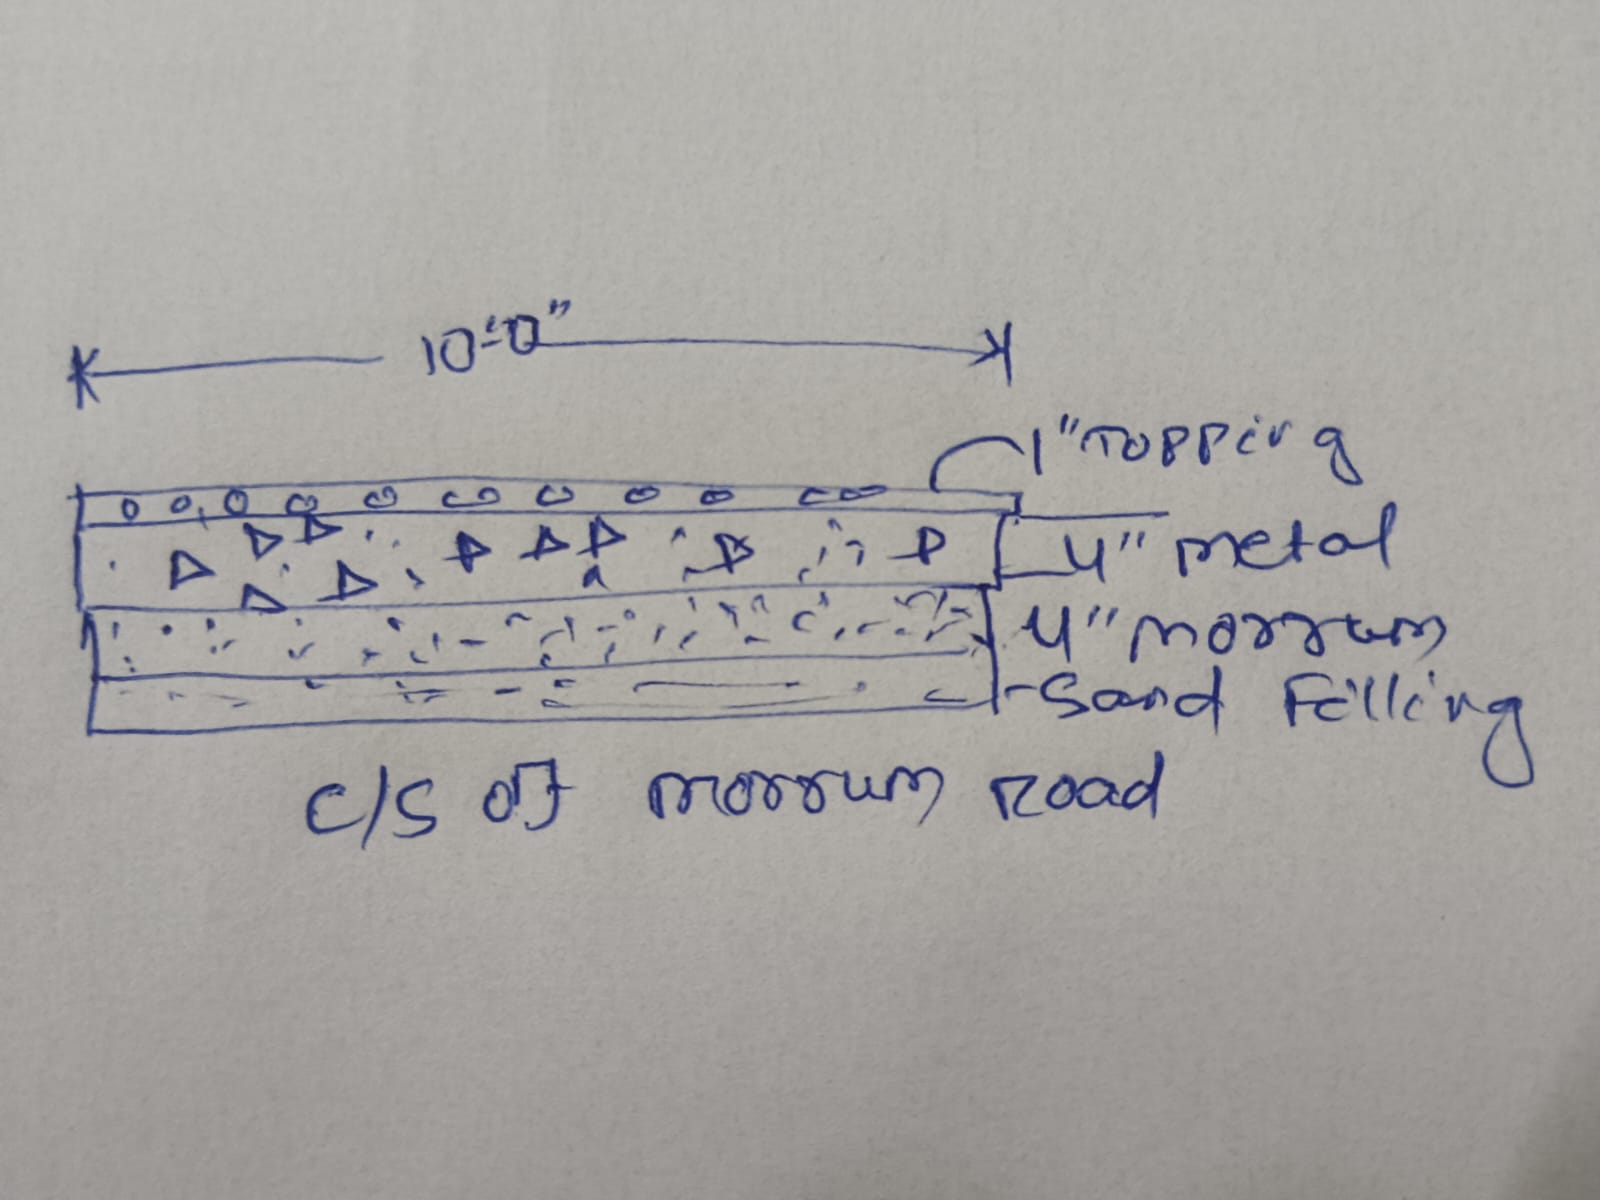 10'-0"
1" Topping
4" metal
4" morrum
Sand Filling
C/S of morrum Road